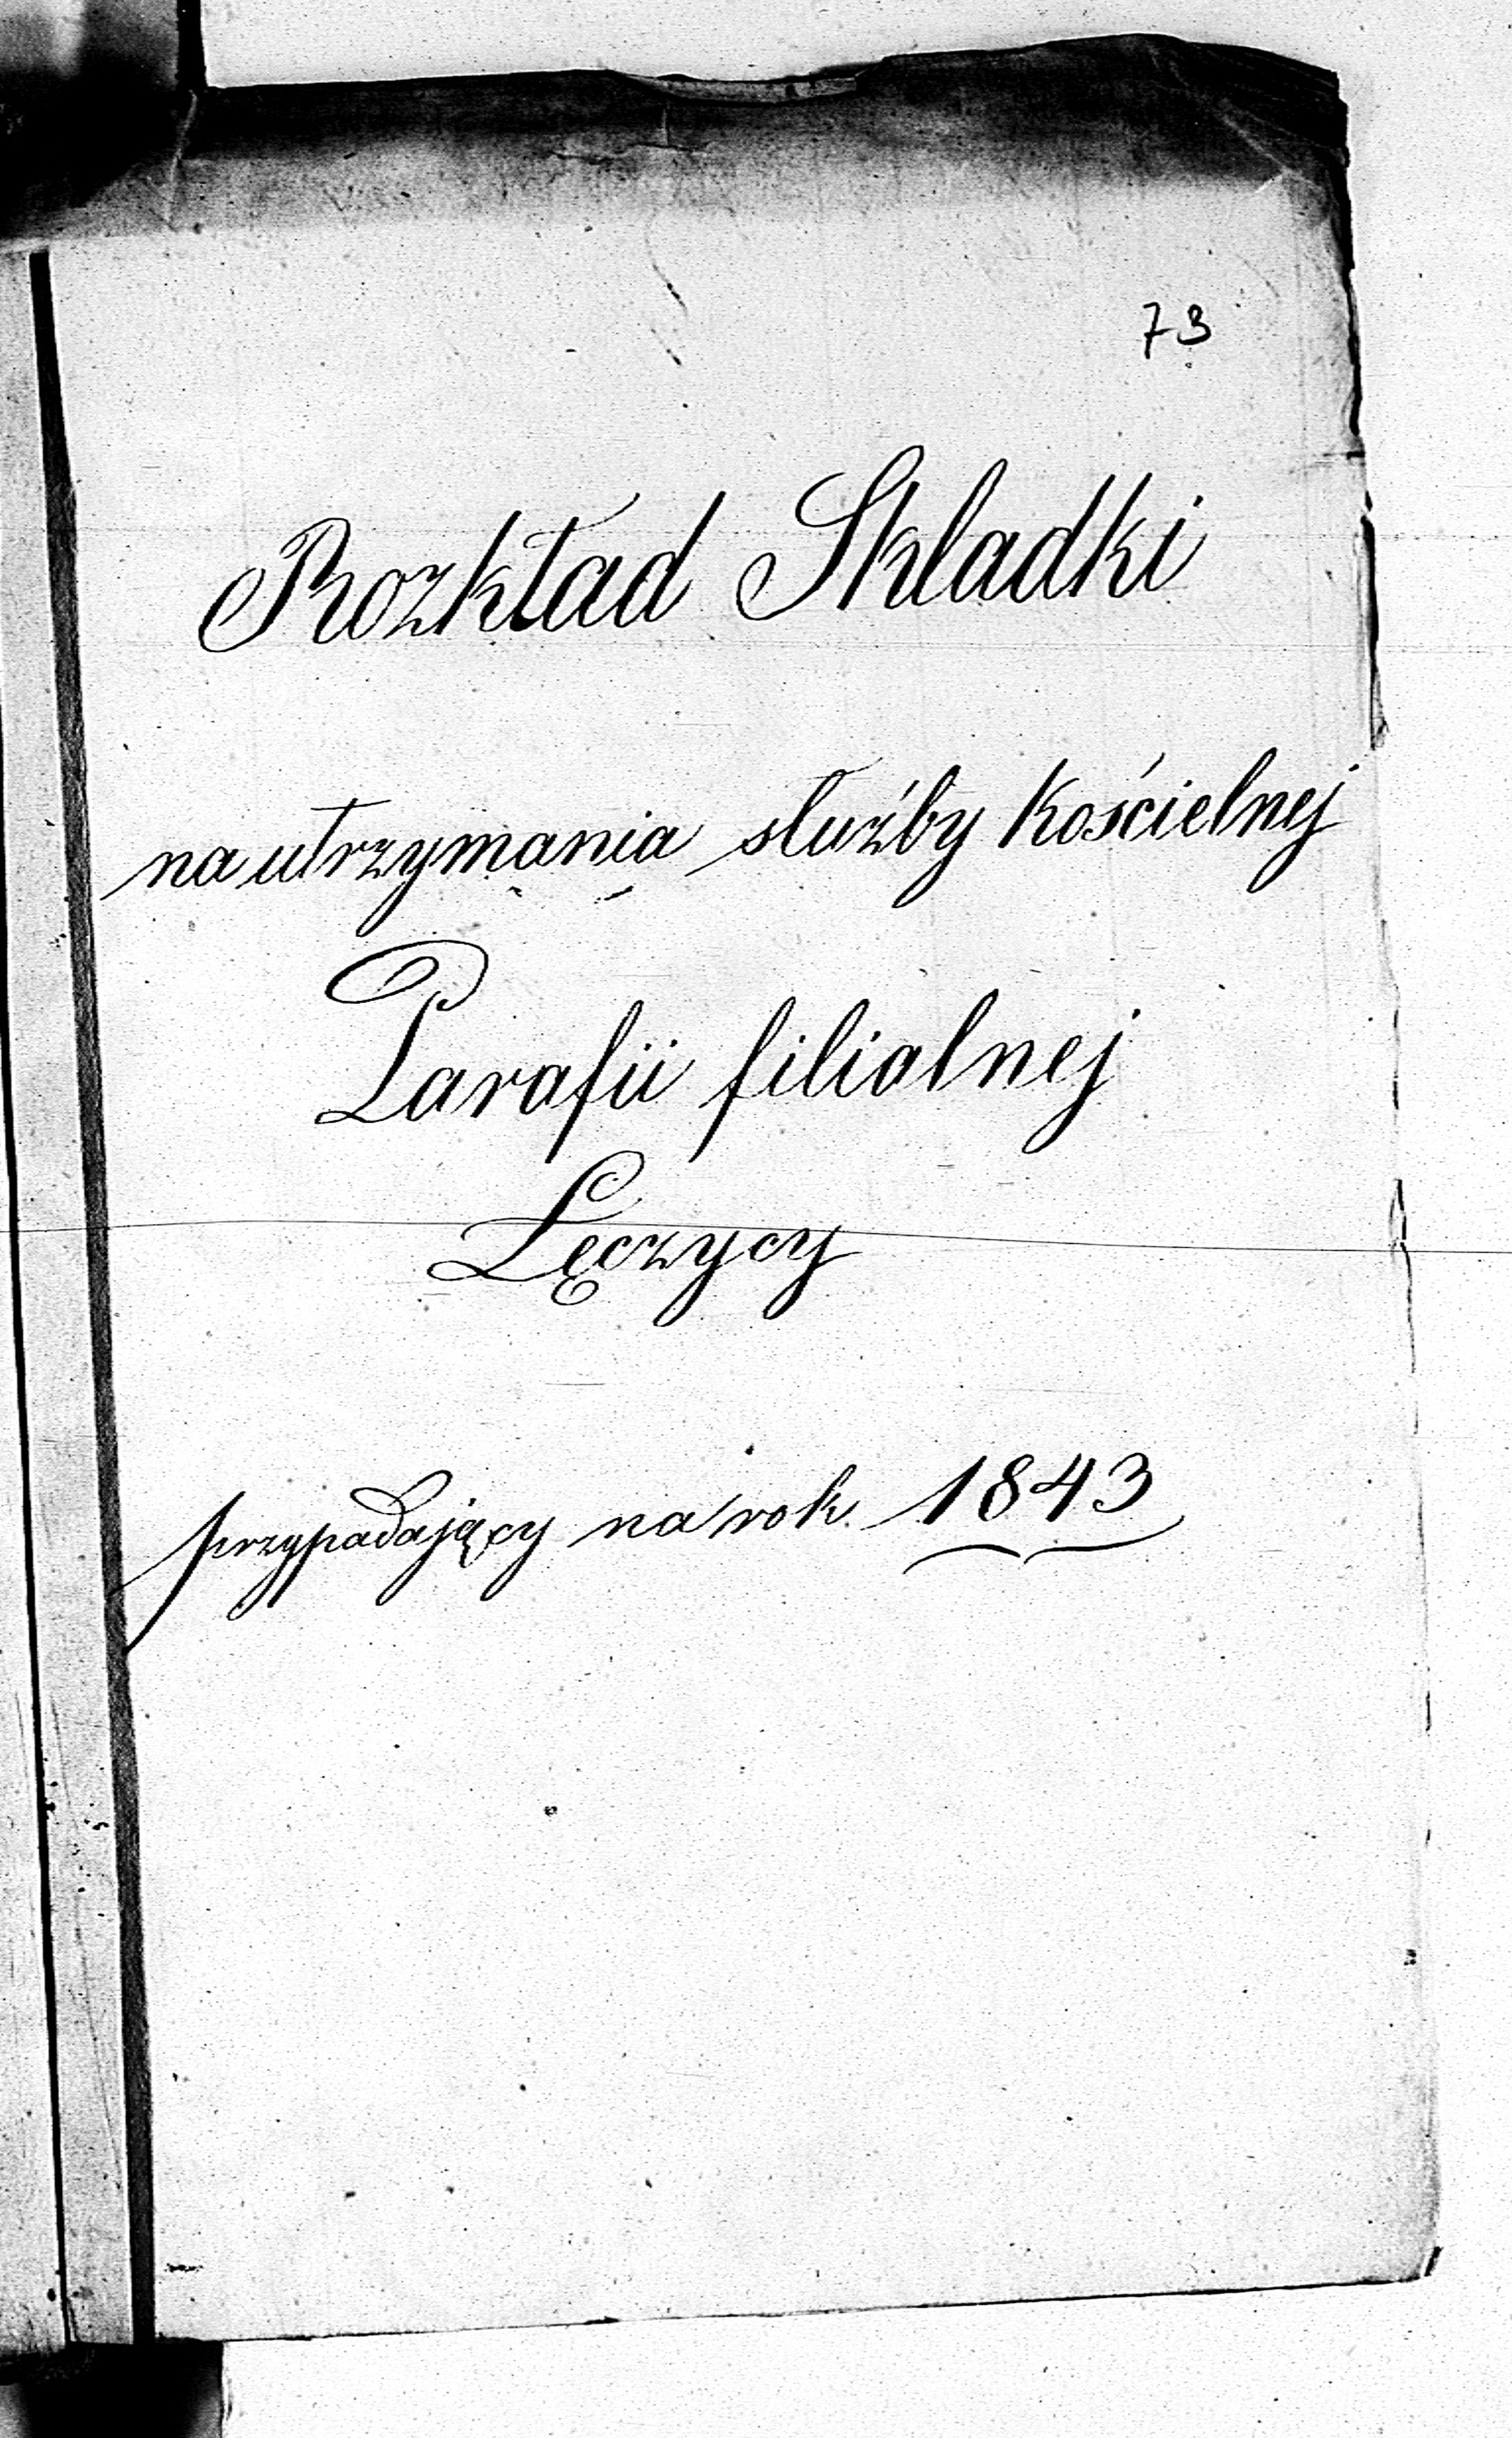 73
Rozkład Składki
na utrzymania służby Kościelnej
Parafii filialnej
Łęczycy
przypadający na rok 1843